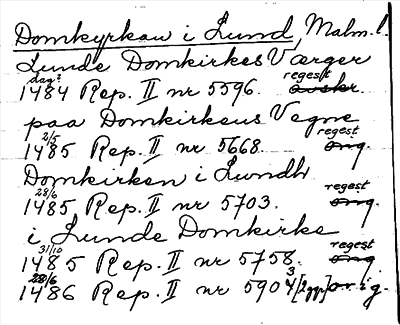 Domkyrkan i Lund, Malm. l.
Lunde Domkirkes Værger
dag? regest
1484 Rep. II nr 5596. avskr.
paa Domkirkens Vegne
2/5 regest
1485 Rep. II nr 5668. orig.
Domkirken i Lundh
28/6 regest
1485 Rep. II nr 5703. orig.
i Lunde Domkirke
31/10 regest
1485 Rep. II nr 5758. orig.
28/6 3
1486 Rep. II nr 5904 [2 ggr] orig.